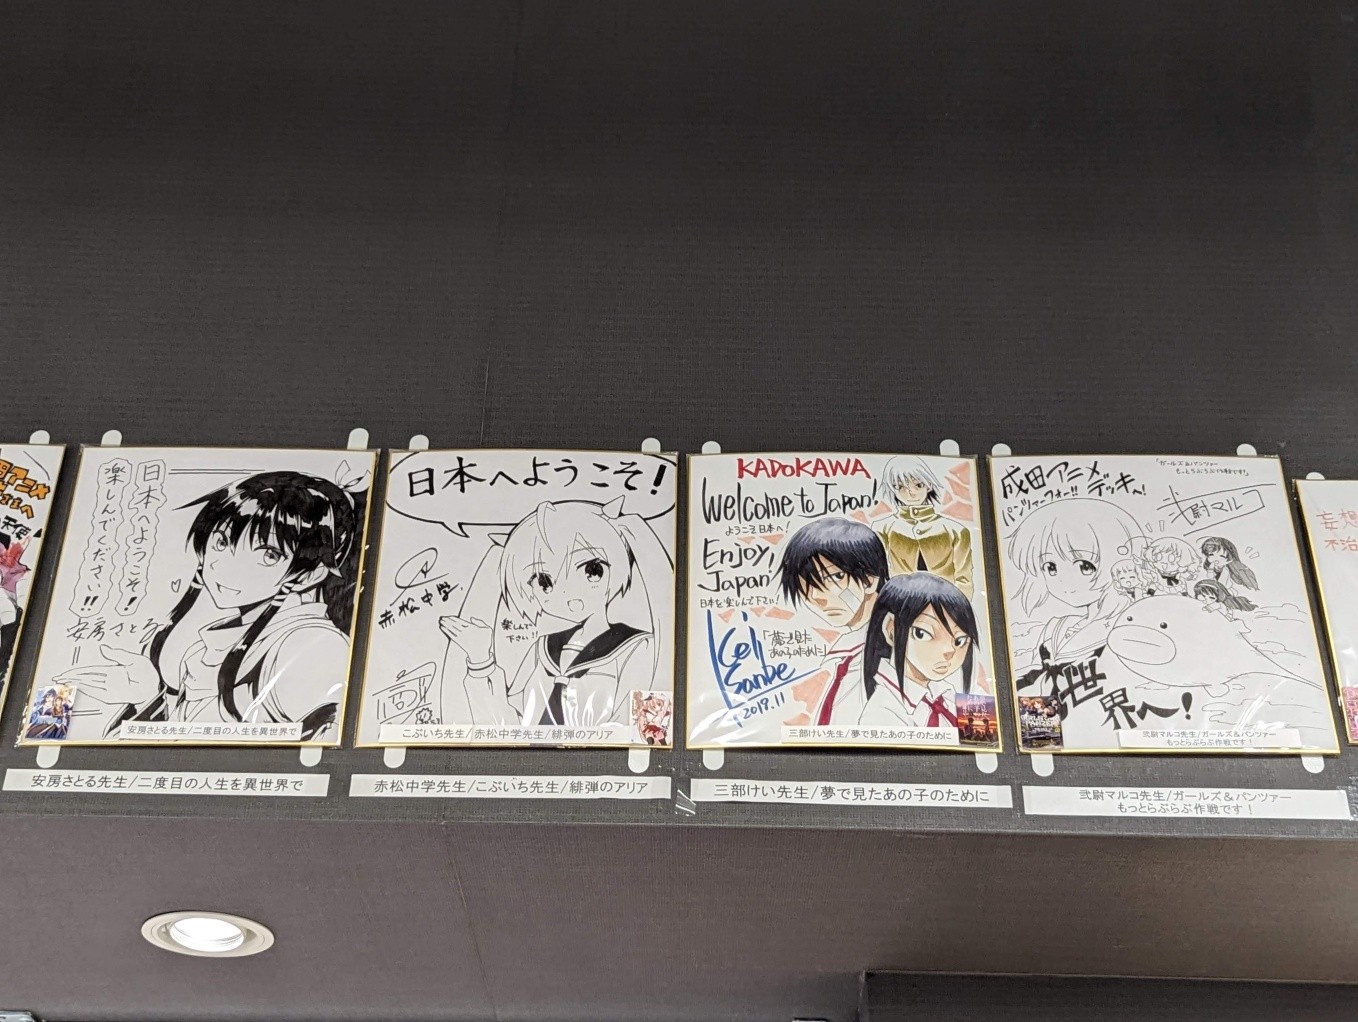 日本へようこそ!
楽しんでください!!
安房さとる
安房さとる先生/二度目の人生を異世界で
安房さとる先生/二度目の人生を異世界で
日本へようこそ!
赤松中学
楽しんで
下さい!!
こぶいち先生/赤松中学先生/緋弾のアリア
赤松中学先生/こぶいち先生/緋弾のアリア
KADOKAWA
Welcome to Japan!
ようこそ日本へ!
Enjoy,
Japan
日本を楽しんで下さい!
Kei
Sanbe
「夢で見た
あの子のために」
2019.11
三部けい先生/夢で見たあの子のために
三部けい先生/夢で見たあの子のために
成田アニメ
デッキへ!
パンツァーフォー!!
「ガールズ&パンツァー
もっとらぶらぶ作戦です!」
弐尉マルコ
世界へ!
弐尉マルコ先生/ガールズ&パンツァー
もっとらぶらぶ作戦です!
弐尉マルコ先生/ガールズ&パンツァー
もっとらぶらぶ作戦です!
妄想